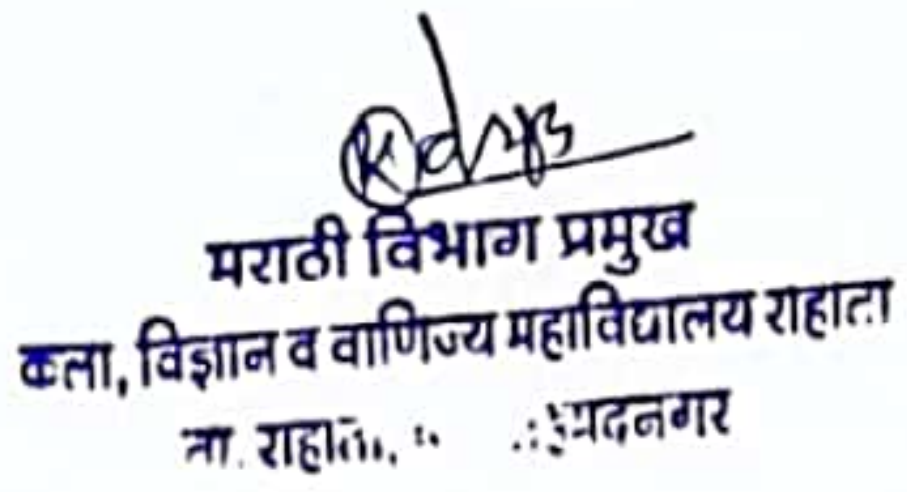 मराठी विभाग प्रमुख
कला, विज्ञान व वाणिज्य महाविद्यालय राहाता
ता. राहाता,